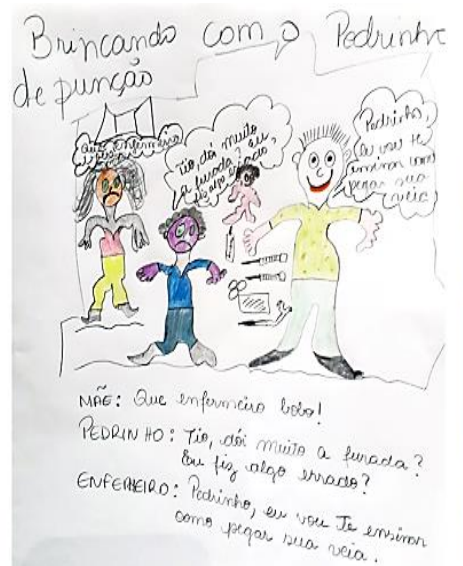 Brincando com o Pedrinho
de punção
Que enfermeiro
bobo!
Tio, dói muito
a furada? eu
fiz algo errado?
Pedrinho,
eu vou te
ensinar como
pegar sua
veia
MÃE: Que enfermeiro bobo!
PEDRINHO: Tio, dói muito a furada?
Eu fiz algo errado?
ENFERMEIRO: Pedrinho, eu vou Te ensinar
como pegar sua veia.